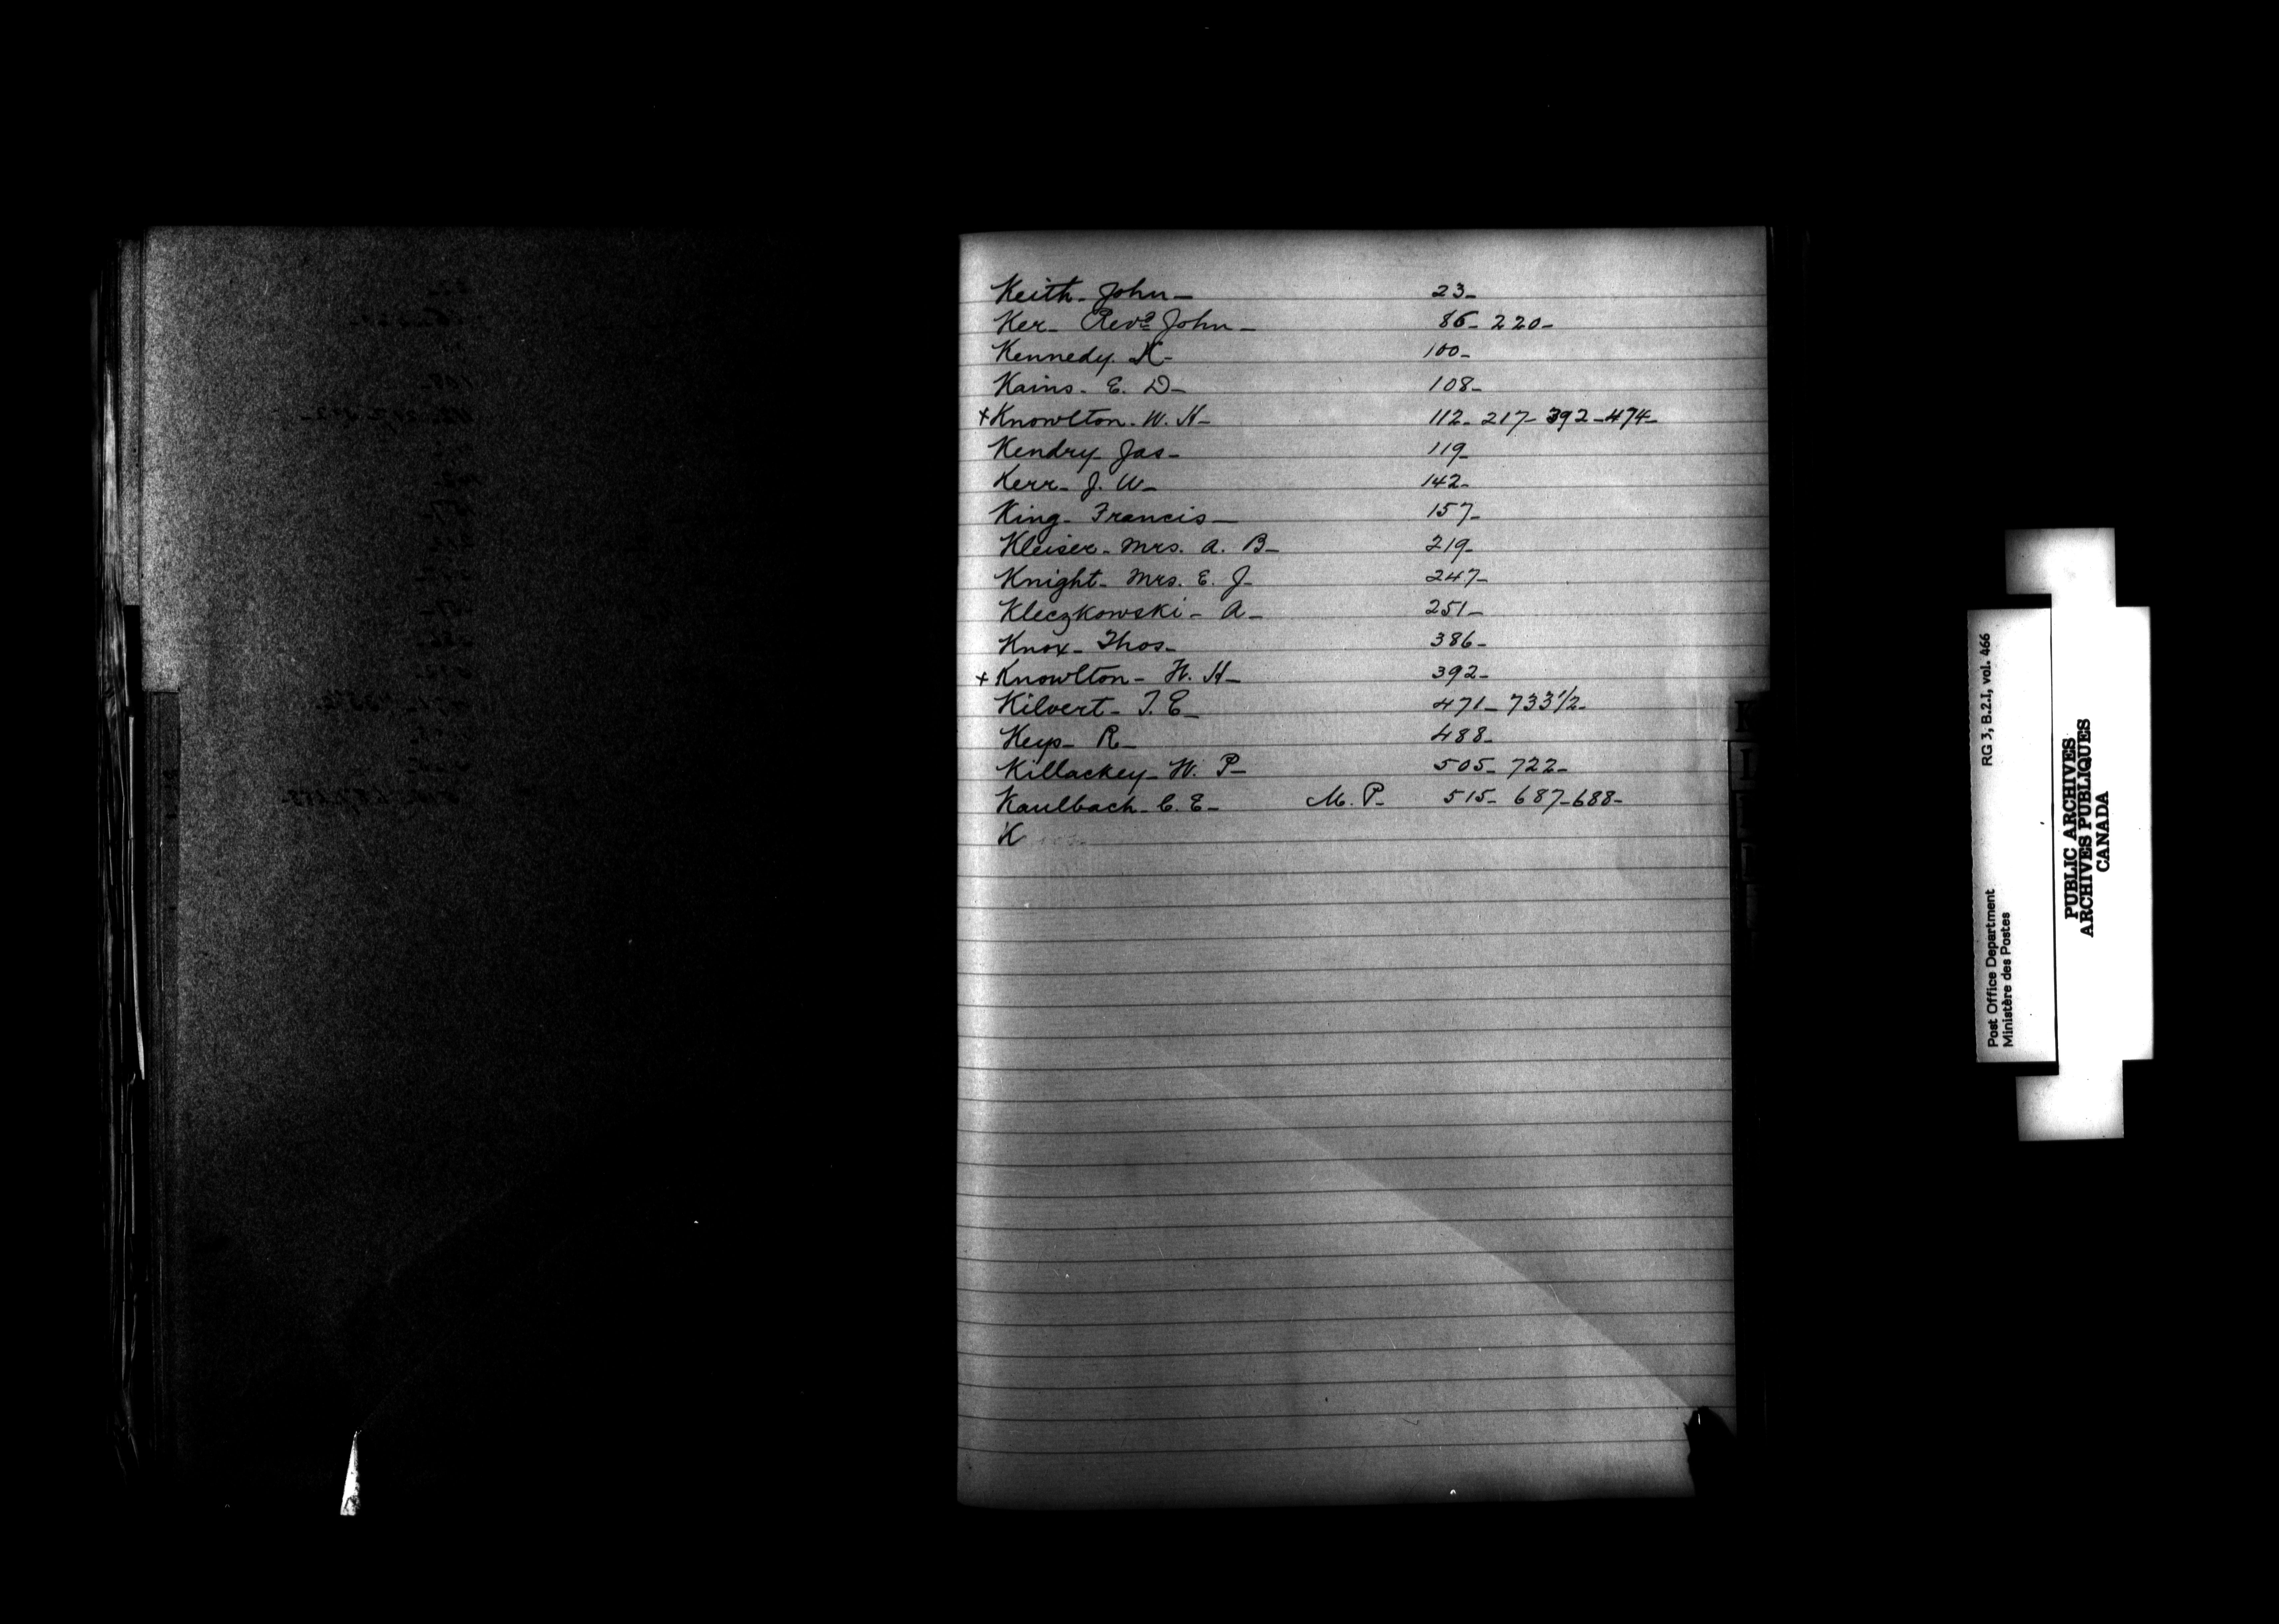 Keith - John - 23 -
Ker - Revd John - 86 - 220 -
Kennedy. K - 100 -
Kains - E. D - 108 -
+ Knowlton - W. H - 112 - 217 - 392 - 474 -
Kendry - Jas - 119 -
Kerr - J. W - 142 -
King - Francis - 157 -
Kleiser - Mrs. A. B - 219 -
Knight - Mrs. E. J - 247 -
Kleczkowski - A - 251 -
Knox - Thos - 386 -
+ Knowlton - W. H - 392 -
Kilvert - F. E - 471 - 733 1/2 -
Keys - R - 488 -
Killackey - W. P - 505 - 722 -
Kaulbach - C. E - M. P - 515 - 687 - 688 -
K
K
L
Post Office Department RG 3, B.2.I, vol. 466
Ministère des Postes
PUBLIC ARCHIVES
ARCHIVES PUBLIQUES
CANADA